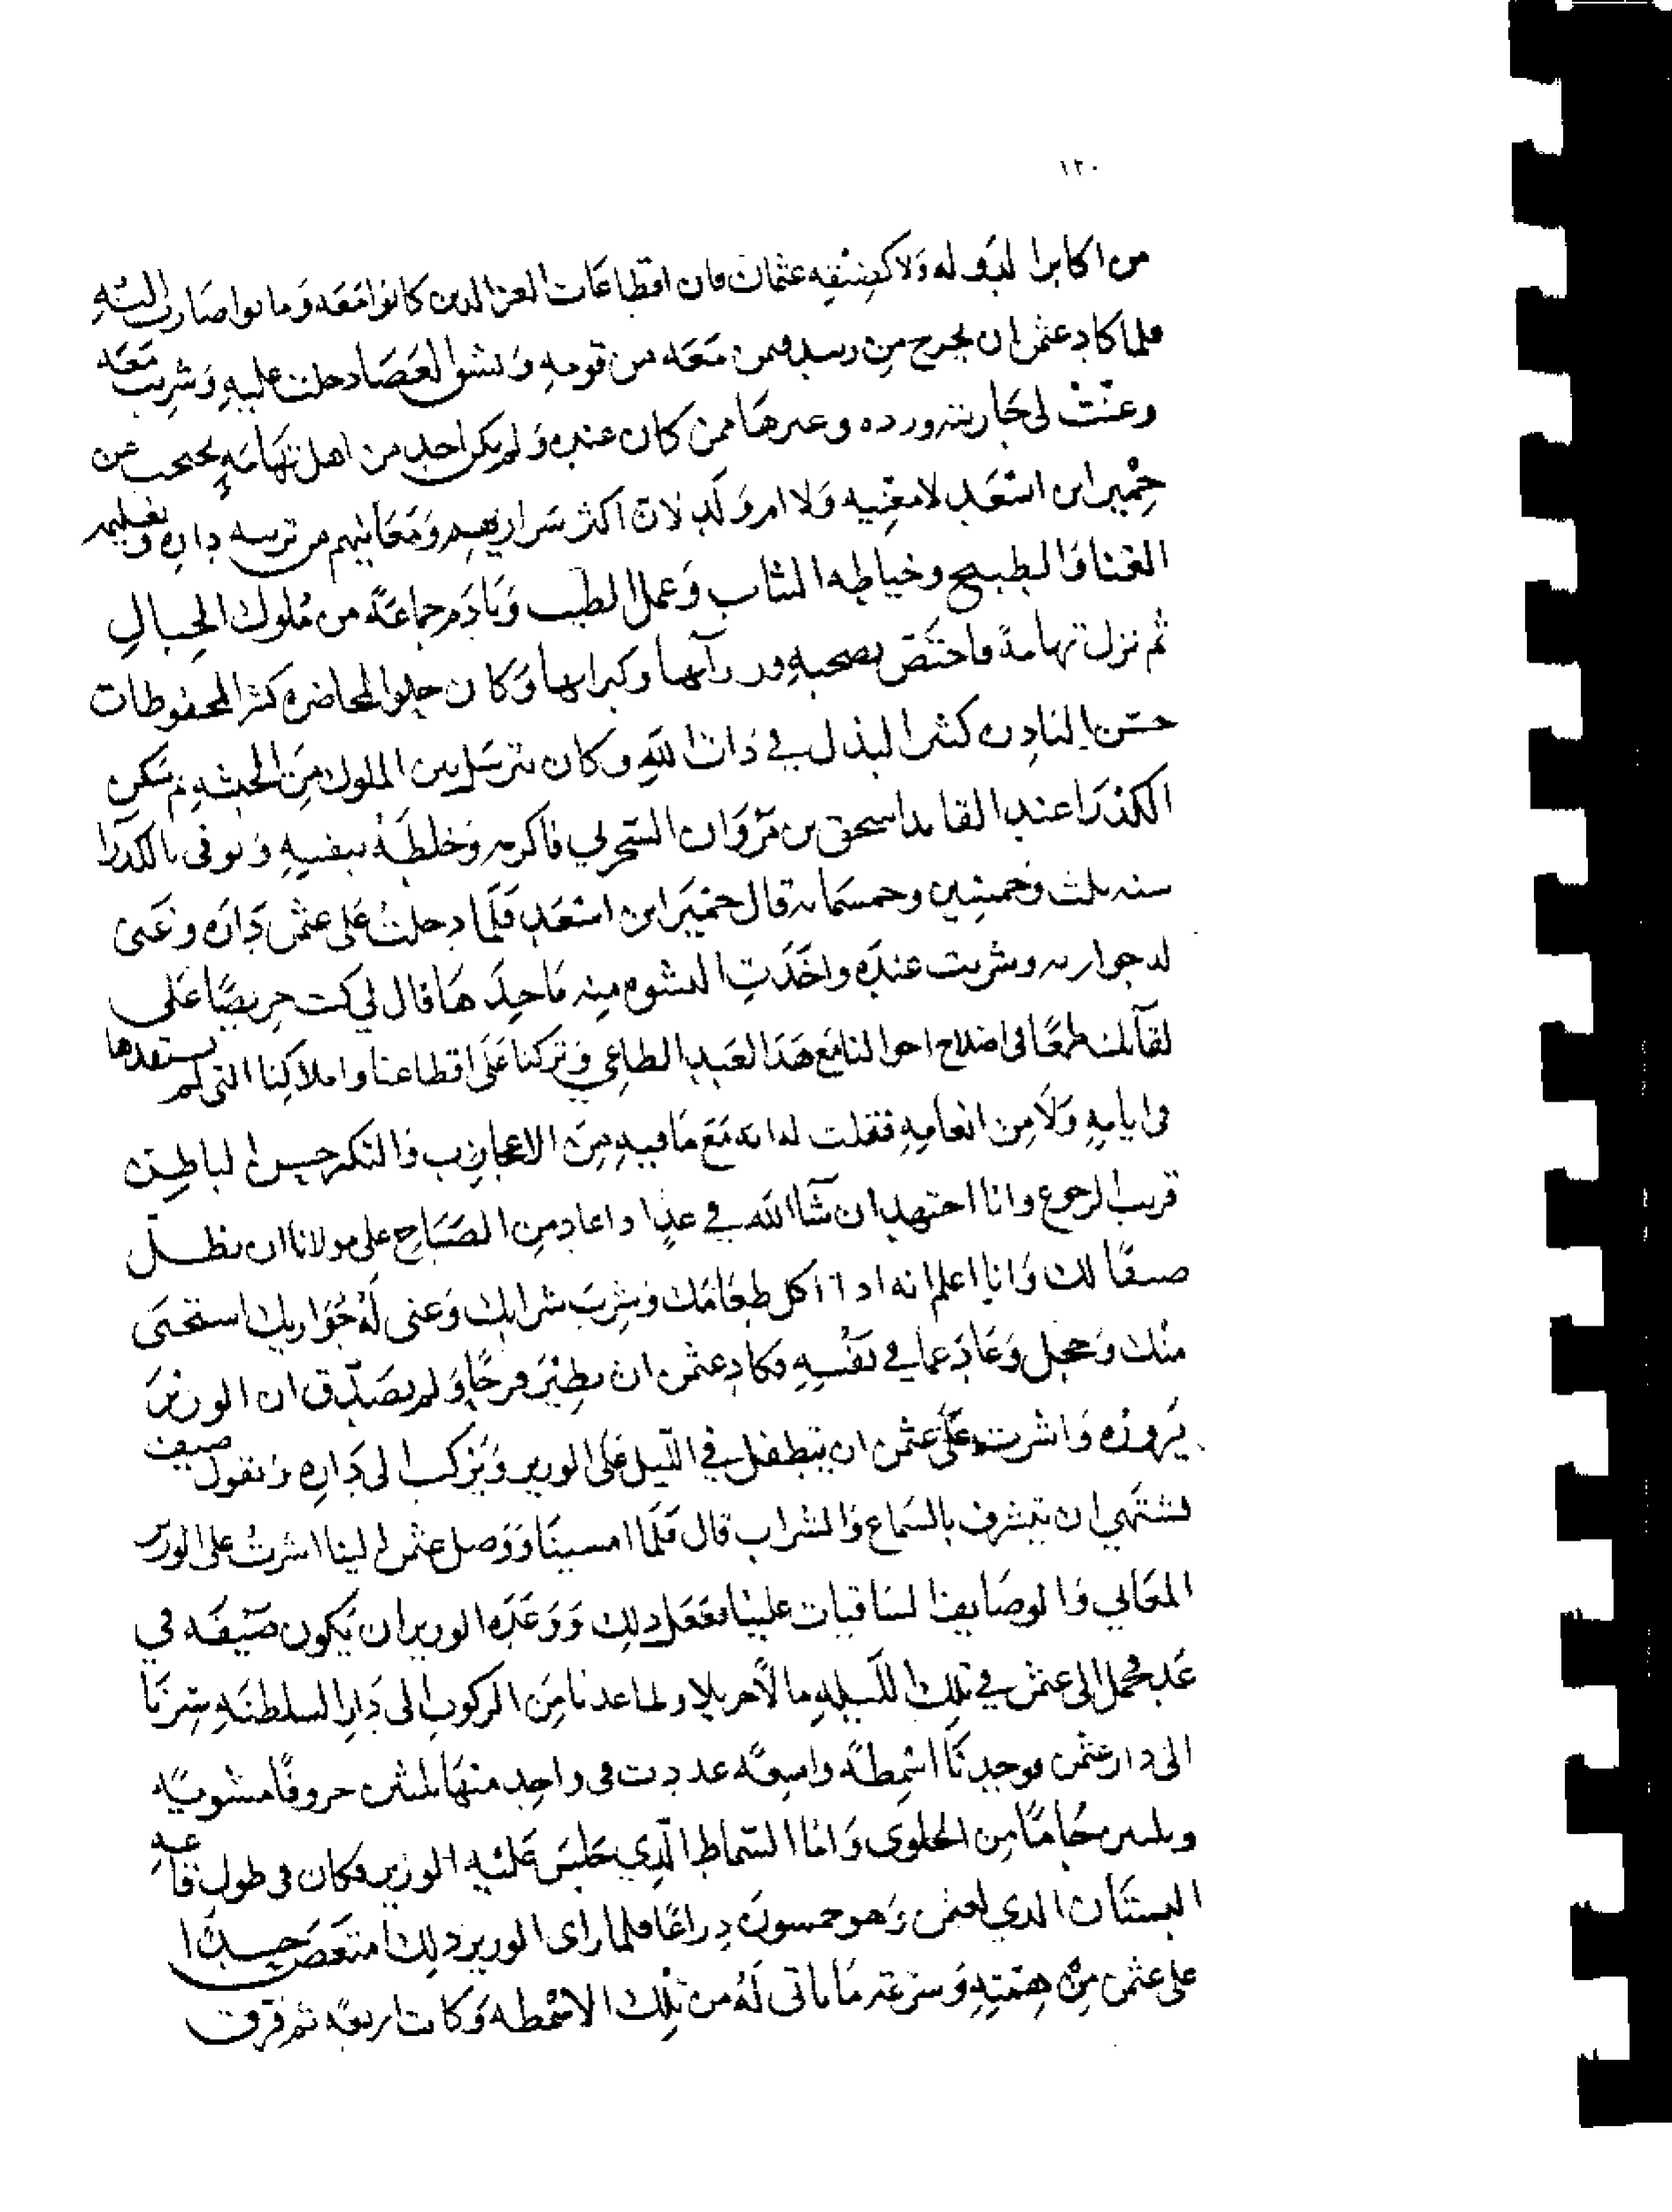 ١٢٠
من اكابر الدوله ولا كضيفه عثمان فان اقطاعات الغز الذين كانوا معه وماتوا صارت اليه
فلما كاد عثمن ان يخرج من زبيد فيمن معه من قومه وتنشق العصا دخلت عليه وشربت معه
وغنت لي جاريته ورده وغيرها ممن كان عنده ولم يكن احد من اهل تهامه يحتجب عن
حمير ابن اسعد لا مغنيه ولا ام ولد لان اكثر سراريهم ومغانيهم من تربيه داره وتعليمه
الغنا والطبيخ وخياطه الثياب وعمل الطيب ونادم جماعة من ملوك الجبال
ثم نزل تهامة فاختص بصحبه وزرآئها وكبرايها وكان حلو المحاضره كثير المحفوظات
حسن النادره كثير البذل في ذات الله وكان يترسل بين الملول من الحبشه ثم سكن
الكدرا عند القايد اسحق بن مرزوان السحرلي فاكرمه وخلطه بنفسه وتوفى بالكدرا
سنه ثلث وخمسين وخمسمايه قال حمير ابن اسعد فلما دخلت على عثمن داره وغنى
له جواريه وشربت عنده واخذت النشوه منه ماخذها قال لي كنت حريصا على
لقآئك طمعا في اصلاح احوالنا مع هذا العبد الطاغي وتركنا على اقطاعنا واملاكنا التي لم يستفدها
في ايامه ولا من انعامه فقلت له انه مع ما فيه من الاعجاب والتكبر حسن الباطن
قريب الرجوع وانا اجتهد ان شآ الله في غد اذا عاد من الصباح على مولانا ان يظل
ضيفا لك وانا اعلم انه اذا اكل طعامك وشرب شرابك وغنى له جواريك استحيى
منك وخجل وعاد عما في نفسه فكاد عثمن ان يطير فرحا ولم يصدق ان الوزير
يزوره واشرت على عثمن ان يتطفل في الليل على الوزير ويركب الى داره ويقول ضيف
يشتهي ان يتشرف بالسماع والشراب قال فلما امسينا ووصل عثمن الينا اشرت على الوزير
المغاني والوصايف الساقيات علينا ففعل ذلك ووعده الوزير ان يكون ضيفه في
غد فحمل الى عثمن في تلك الليله مالا جزيلا ولما عدنا من الركوب الى دار السلطنه سرنا
الى دار عثمن فوجدنا اسمطة واسعة عددت في واحد منها ثلثين خروفا مشويه
وثلثين جاما من الحلوى واما السماط الذي جلس عليه الوزير فكان في طول قاعه
البستان الذي لعثمن وهو خمسون ذراعا فلما راى الوزير ذلك امتعض حسدا
على عثمن من همته وسرعه ما ياتى له من تلك الاسمطه وكانت اربعه ثم فرقت